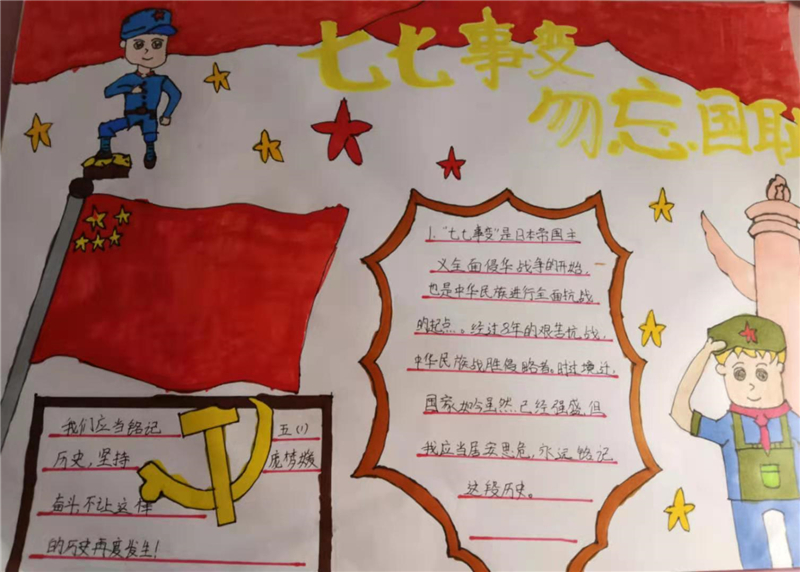 七七事变
勿忘国耻
1."七七事变"是日本帝国主
义全面侵华战争的开始,
也是中华民族进行全面抗战
的起点。经过8年的艰苦抗战,
中华民族战胜侵略者。时过境迁,
国家如今虽然已经强盛,但
我应当居安思危,永远铭记
这段历史。
我们应当铭记
历史,坚持
奋斗,不让这样
的历史再度发生!
五(1)
庞梦媛